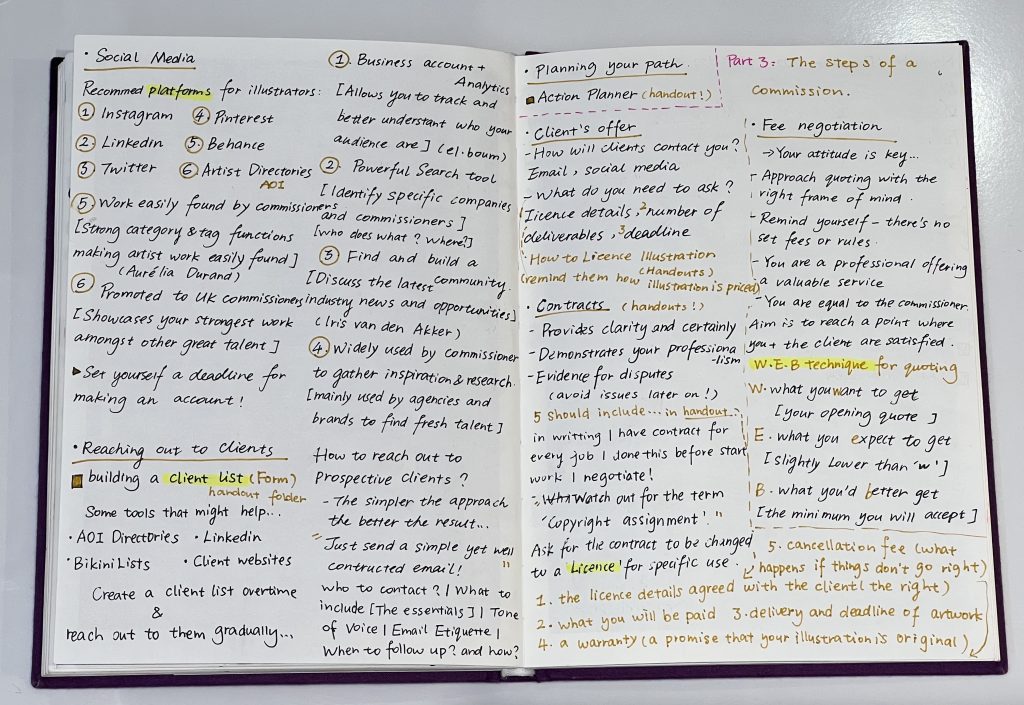 • Social Media
Recommed platforms for illustrators:
① Instagram ④ Pinterest
② Linkedin ⑤ Behance
③ Twitter ⑥ Artist Directories
AOI
⑤ Work easily found by commissioners
[Strong category & tag functions
making artist work easily found]
(Aurélia Durand)
⑥ Promoted to UK commissioners
[Showcases your strongest work
amongst other great talent]
▸Set yourself a deadline for
making an account!
• Reaching out to Clients
building a client list (Form)
handout folder
Some tools that might help...
• AOI Directories • Linkedin
• Bikini Lists • Client websites
Create a client list overtime
&
reach out to them gradually...
① Business account +
Analytics
[Allows you to track and
better understant who your
audience are] (el.boum)
② Powerful Search tool
[Identify specific companies
and commissioners]
[who does what? Where?]
③ Find and build a
community.
[Discuss the latest
industry news and opportunities]
(Iris van den Akker)
④ Widely used by commissioner
to gather inspiration & research.
[mainly used by agencies and
brands to find fresh talent]
How to reach out to
Prospective Clients?
- The simpler the approach
the better the result...
"Just send a simple yet well
contructed email!"
who to contact? | What to
include [The essentials] | Tone
of Voice | Email Etiquette |
When to follow up? and how?
• Planning your path.
Action Planner (handout!)
• Client's offer
- How will clients contact you?
Email, social media
- What do you need to ask?
1 licence details, 2 number of
deliverables, 3 deadline
• How to Licence Illustration
(Handouts)
(remind them how illustration is priced)
• Contracts (handouts!)
- Provides clarity and certainly
- Demonstrates your professiona
-lism
- Evidence for disputes
(avoid issues later on!)
5 should include... in handout...
in writting | have contract for
every job | done this before start
work | negotiate!
" Watch out for the term
'Copyright assignment'. "
Ask for the contract to be changed
to a 'Licence' for specific use.
Part 3: The steps of a
commission.
• Fee negotiation
→ Your attitude is key...
- Approach quoting with the
right frame of mind.
- Remind yourself - there's no
set fees or rules.
- You are a professional offering
a valuable service
- You are equal to the commissioner.
Aim is to reach a point where
you + the client are satisfied.
W.E.B technique for quoting
W. what you want to get
[your opening quote]
E. what you expect to get
[slightly lower than 'w']
B. what you'd better get
[the minimum you will accept]
5. cancellation fee (what
happens if things don't go right)
1. the licence details agreed with the client (the right)
2. what you will be paid 3. delivery and deadline of artwork
4. a warranty (a promise that your illustration is original)